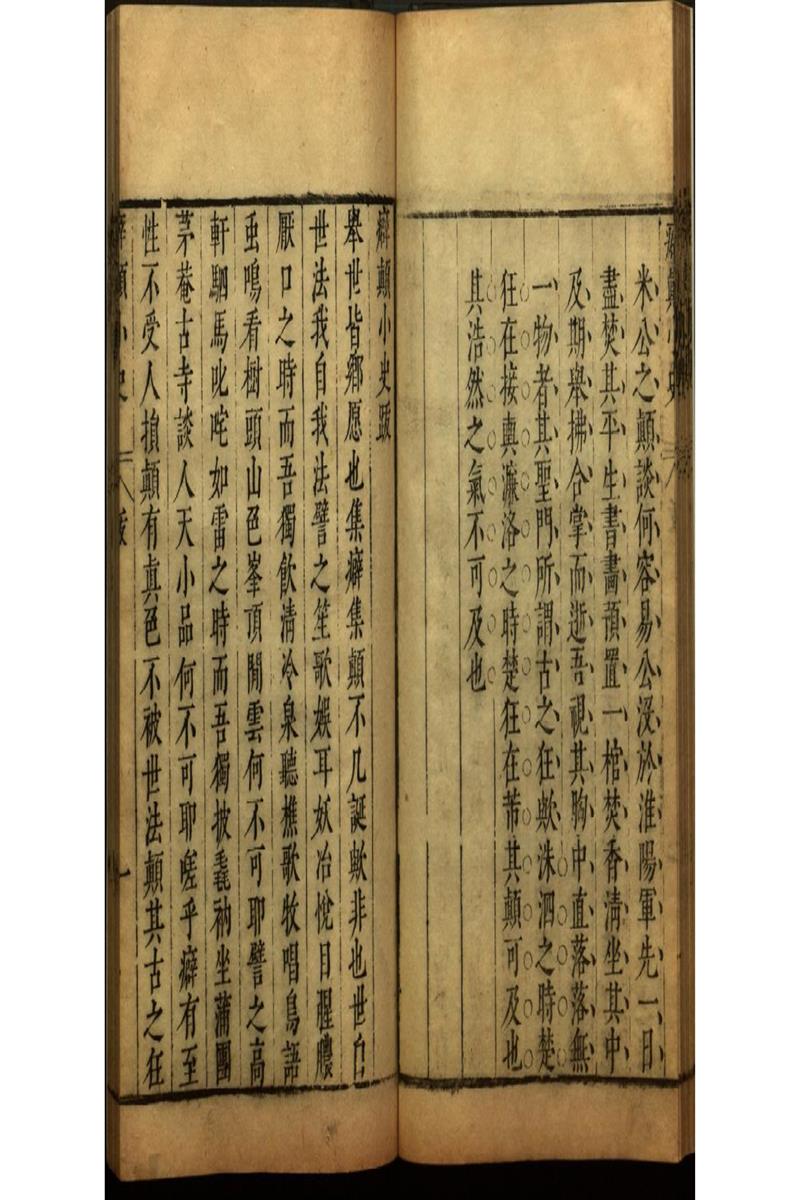 米公之顛談何容易公沒於淮陽軍先一日
盡焚其平生書畵預置一棺焚香清坐其中
及期舉拂合掌而逝吾視其胸中直落落無
一物者其聖門所謂古之狂歟洙泗之時楚
狂在接輿濂洛之時楚狂在芾其顛可及也
其浩然之氣不可及也
癖顛小史跋
舉世皆鄉愿也集癖集顛不几誕歟非也世自
世法我自我法譬之笙歌娛耳妖冶悅目腥膿
厭口之時而吾獨飲清冷泉聽樵歌牧唱鳥語
虫鳴看樹頭山色峯頂閒雲何不可耶譬之高
軒駟馬叱咤如雷之時而吾獨披毳衲坐蒲團
茅菴古寺談人天小品何不可耶嗟乎癖有至
性不受人損顛有真色不被世法顛其古之狂
癖顛小史
跋
一